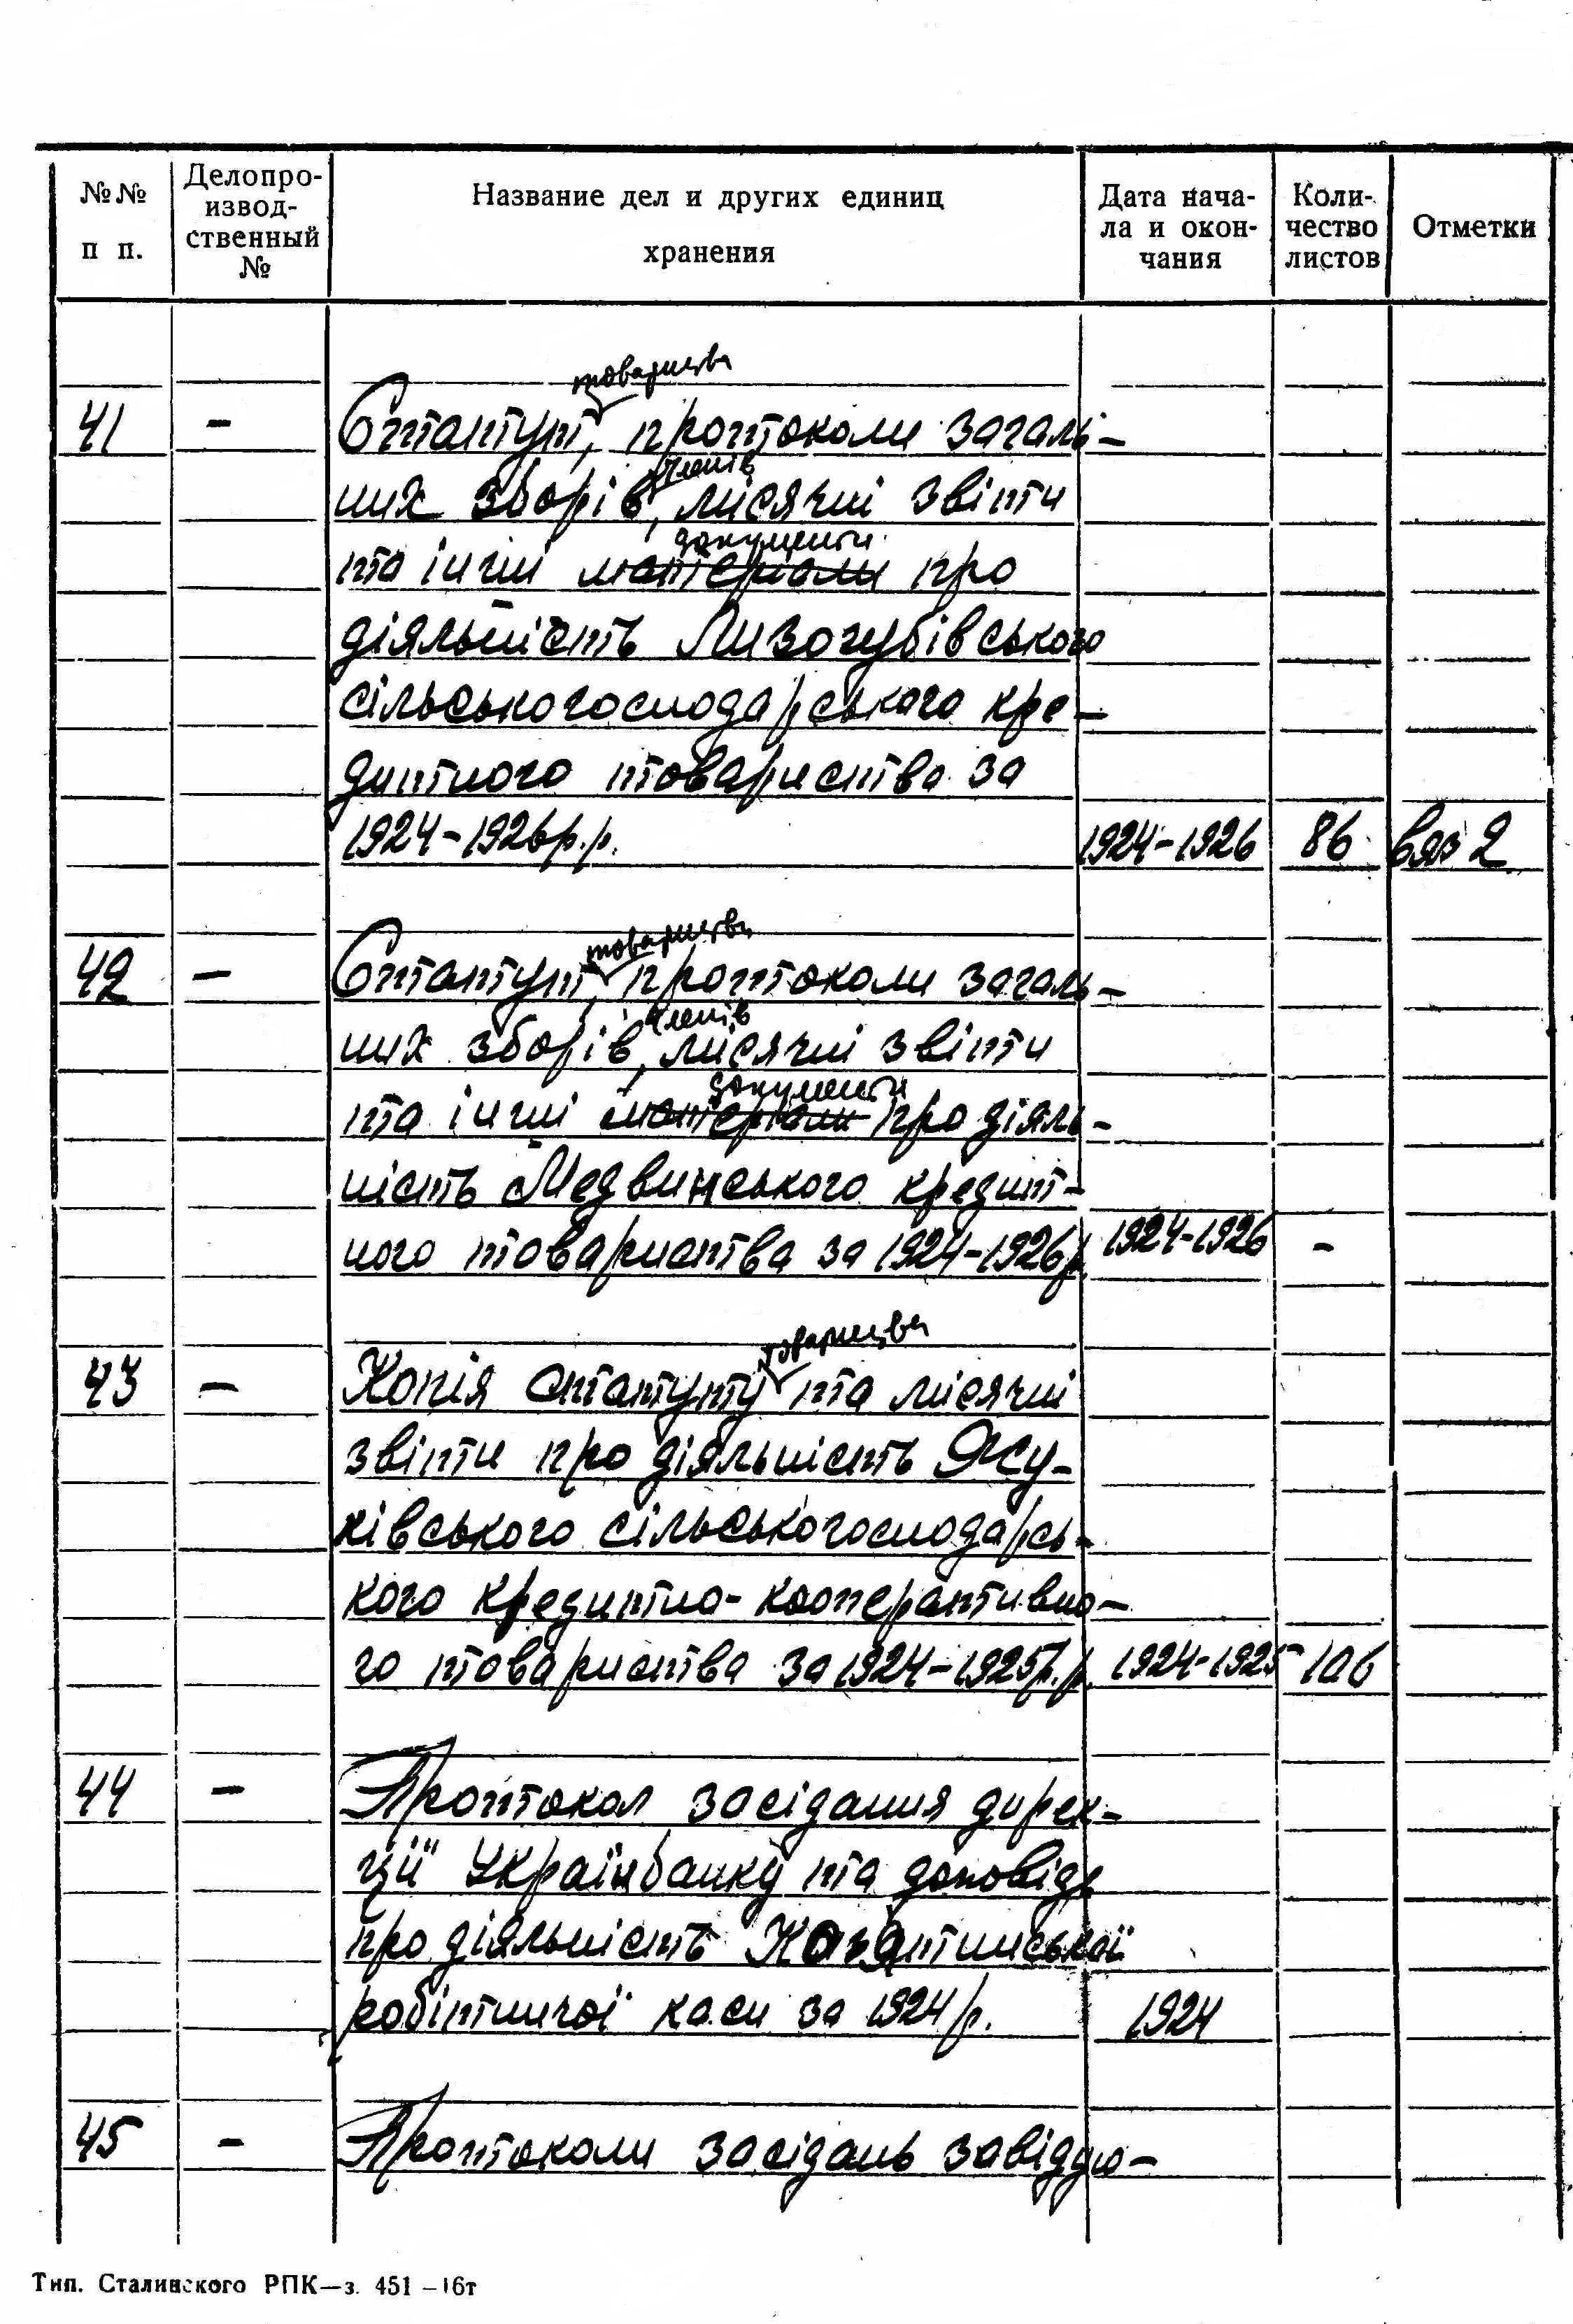 №№ п п.
Делопро-
извод-
ственный
№
Название дел и других единиц
хранения
Дата нача-
ла и окон-
чания
Коли-
чество
листов
Отметки
товариства
41 – Статут, протоколи загаль-
членів
них зборів, місячні звіти
документи
та інші матеріали про
діяльність Лизогубівського
сільськогосподарського кре-
дитного товариства за
1924-1926р.р. 1924-1926 86 Вяз 2
товариства
42 – Статут, протоколи загаль-
членів
них зборів, місячні звіти
документи
та інші матеріали про діяль-
ність Медвинського кредит-
ного товариства за 1924-1926р. 1924-1926 –
товариства
43 – Копія статуту та місячні
звіти про діяльність Жу-
ківського сільськогосподарсь-
кого кредитно-кооперативно-
го товариства за 1924-1925р.р. 1924-1925 106
44 – Протокол засідання дирек-
ції Українбанку та доповідь
про діяльність Козятинської
робітничої каси за 1924р. 1924
45 – Протоколи засідань завідую-
Тип. Сталинского РПК—з. 451 –16т